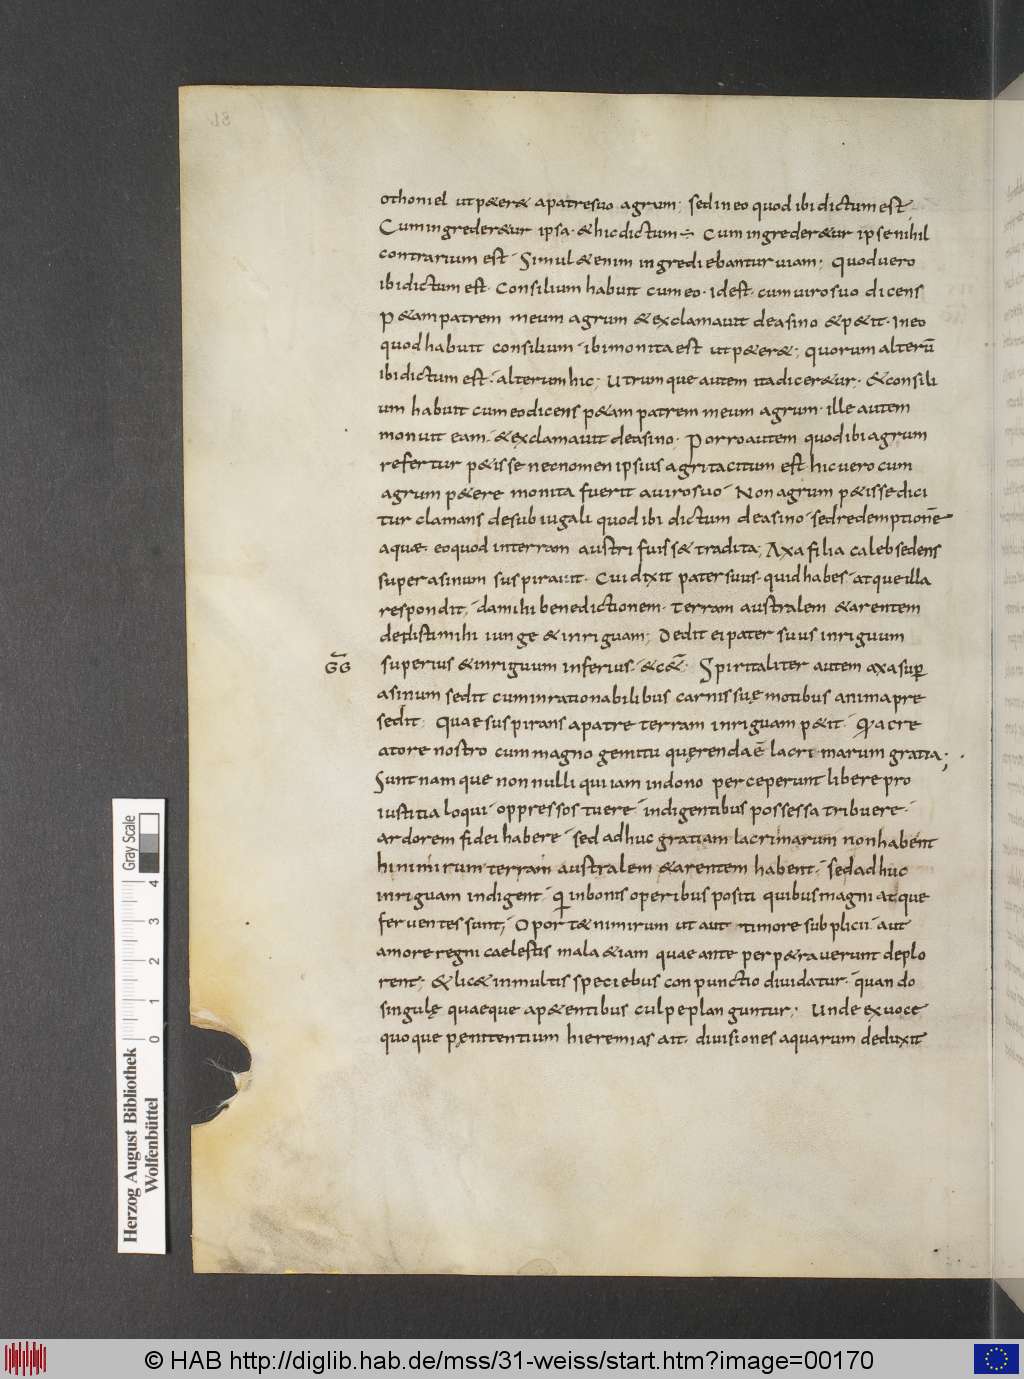 othoniel ut p&er& a patre suo agrum; sed in eo quod ibi dictum est,
Cum ingreder&ur ipsa · & hic dictum ÷ Cum ingreder&ur ipse nihil
contrarium est · Simul &enim ingrediebantur viam; quod vero
ibi dictum est · Consilium habuit cum eo · Id est · cum viro suo dicens
P&am patrem meum agrum & exclamavit de asino & p&iit · In eo
quod habuit consilium · ibi monita est ut p&er&; quorum alterū
ibi dictum est · alterum hic; Utrumque autem ita dicer&ur · & consili
um habuit cum eo dicens p&am patrem meum agrum · ille autem
monuit eam · & exclamavit de asino · Porro autem quod ibi agrum
refertur p&isse nec nomen ipsius agri tacitum est hic vero cum
agrum p&ere monita fuerit a viro suo · Non agrum p&isse dici
tur clamans de subiugali quod ibi dictum de asino · sed redemptionē
aquae · eo quod in terram austri fuiss& tradita; Axa filia caleb sedens
super asinum suspiravit · Cui dixit pater suus · quid habes · atque illa
respondit, da mihi benedictionem · terram australem & arentem
dedisti mihi iunge & inriguam; Dedit ei pater suus inriguum
GG superius & inriguum inferius · & c&̄ · Spiritaliter autem axa sup̄
asinum sedit cum inrationabilibus carnis suę motibus anima pre
sedit · Quae suspirans a patre terram inriguam p&iit · q̄a cre
atore nostro cum magno gemitu quęrenda ē lacrimarum gratia;
Sunt namque nonnulli qui iam in dono perceperunt libere pro
iustitia loqui · oppressos tuere · indigentibus possessa tribuere ·
ardorem fidei habere · sed adhuc gratiam lacrimarum non habent
hi nimirum terram australem & arentem habent · sed adhuc
inriguam indigent · q̄ in bonis operibus positi quibus magni atque
ferventes sunt; Oport& nimirum ut aut timore supplicii aut
amore regni caelestis mala &iam quae ante perp&raverunt deplo
rent; & lic& in multis speciebus conpunctio dividatur · quando
singulę quaeque a p&entibus culpe planguntur; Unde ex voce
quoque pęnitentium hieremias ait · divisiones aquarum deduxit
Gray Scale
0 1 2 3 4
Herzog August Bibliothek
Wolfenbüttel
© HAB http://diglib.hab.de/mss/31-weiss/start.htm?image=00170